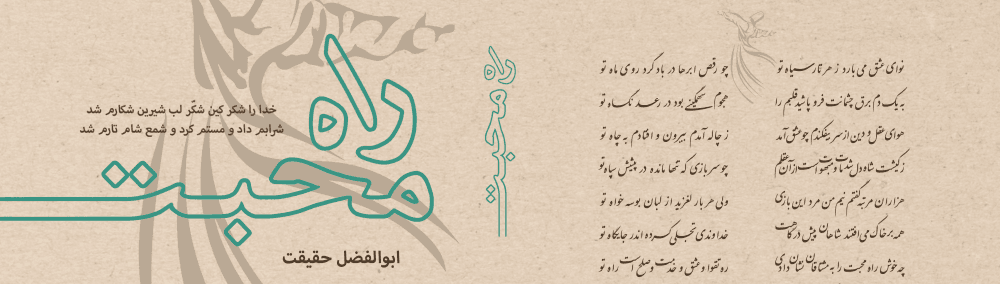 راه
محبت
خدا را شکر کین شکّر لب شیرین شکارم شد
شرابم داد و مستم کرد و شمع شام تارم شد
ابوالفضل حقیقت
راه محبت
نوای عشق می بارد ز هر تار سیاه تو
چو رقص ابرها در باد گرد روی ماه تو
به یک دم برق چشمانت فرو پاشید قلبم را
هجوم سهمگینی بود در رعد نگاه تو
هوای عقل و دین از سر بیفکندم چو عشق آمد
ز چاله آمدم بیرون و افتادم به چاه تو
ز کیشت شاه دل شد مات و مبهوت است از آن عقلم
چو سربازی که تنها مانده در پیش سپاه تو
هزاران مرتبه گفتم نیم من مرد این بازی
ولی هر بار لغزید از لبان بوسه خواه تو
همه بر خاک می افتند شاهان پیش درگاهت
خداوندی تجلی کرده اندر جایگاه تو
چه خوش راه محبت را به مشتاقان نشان دادی
ره تقوا و عشق و خدمت و صلح است راه تو